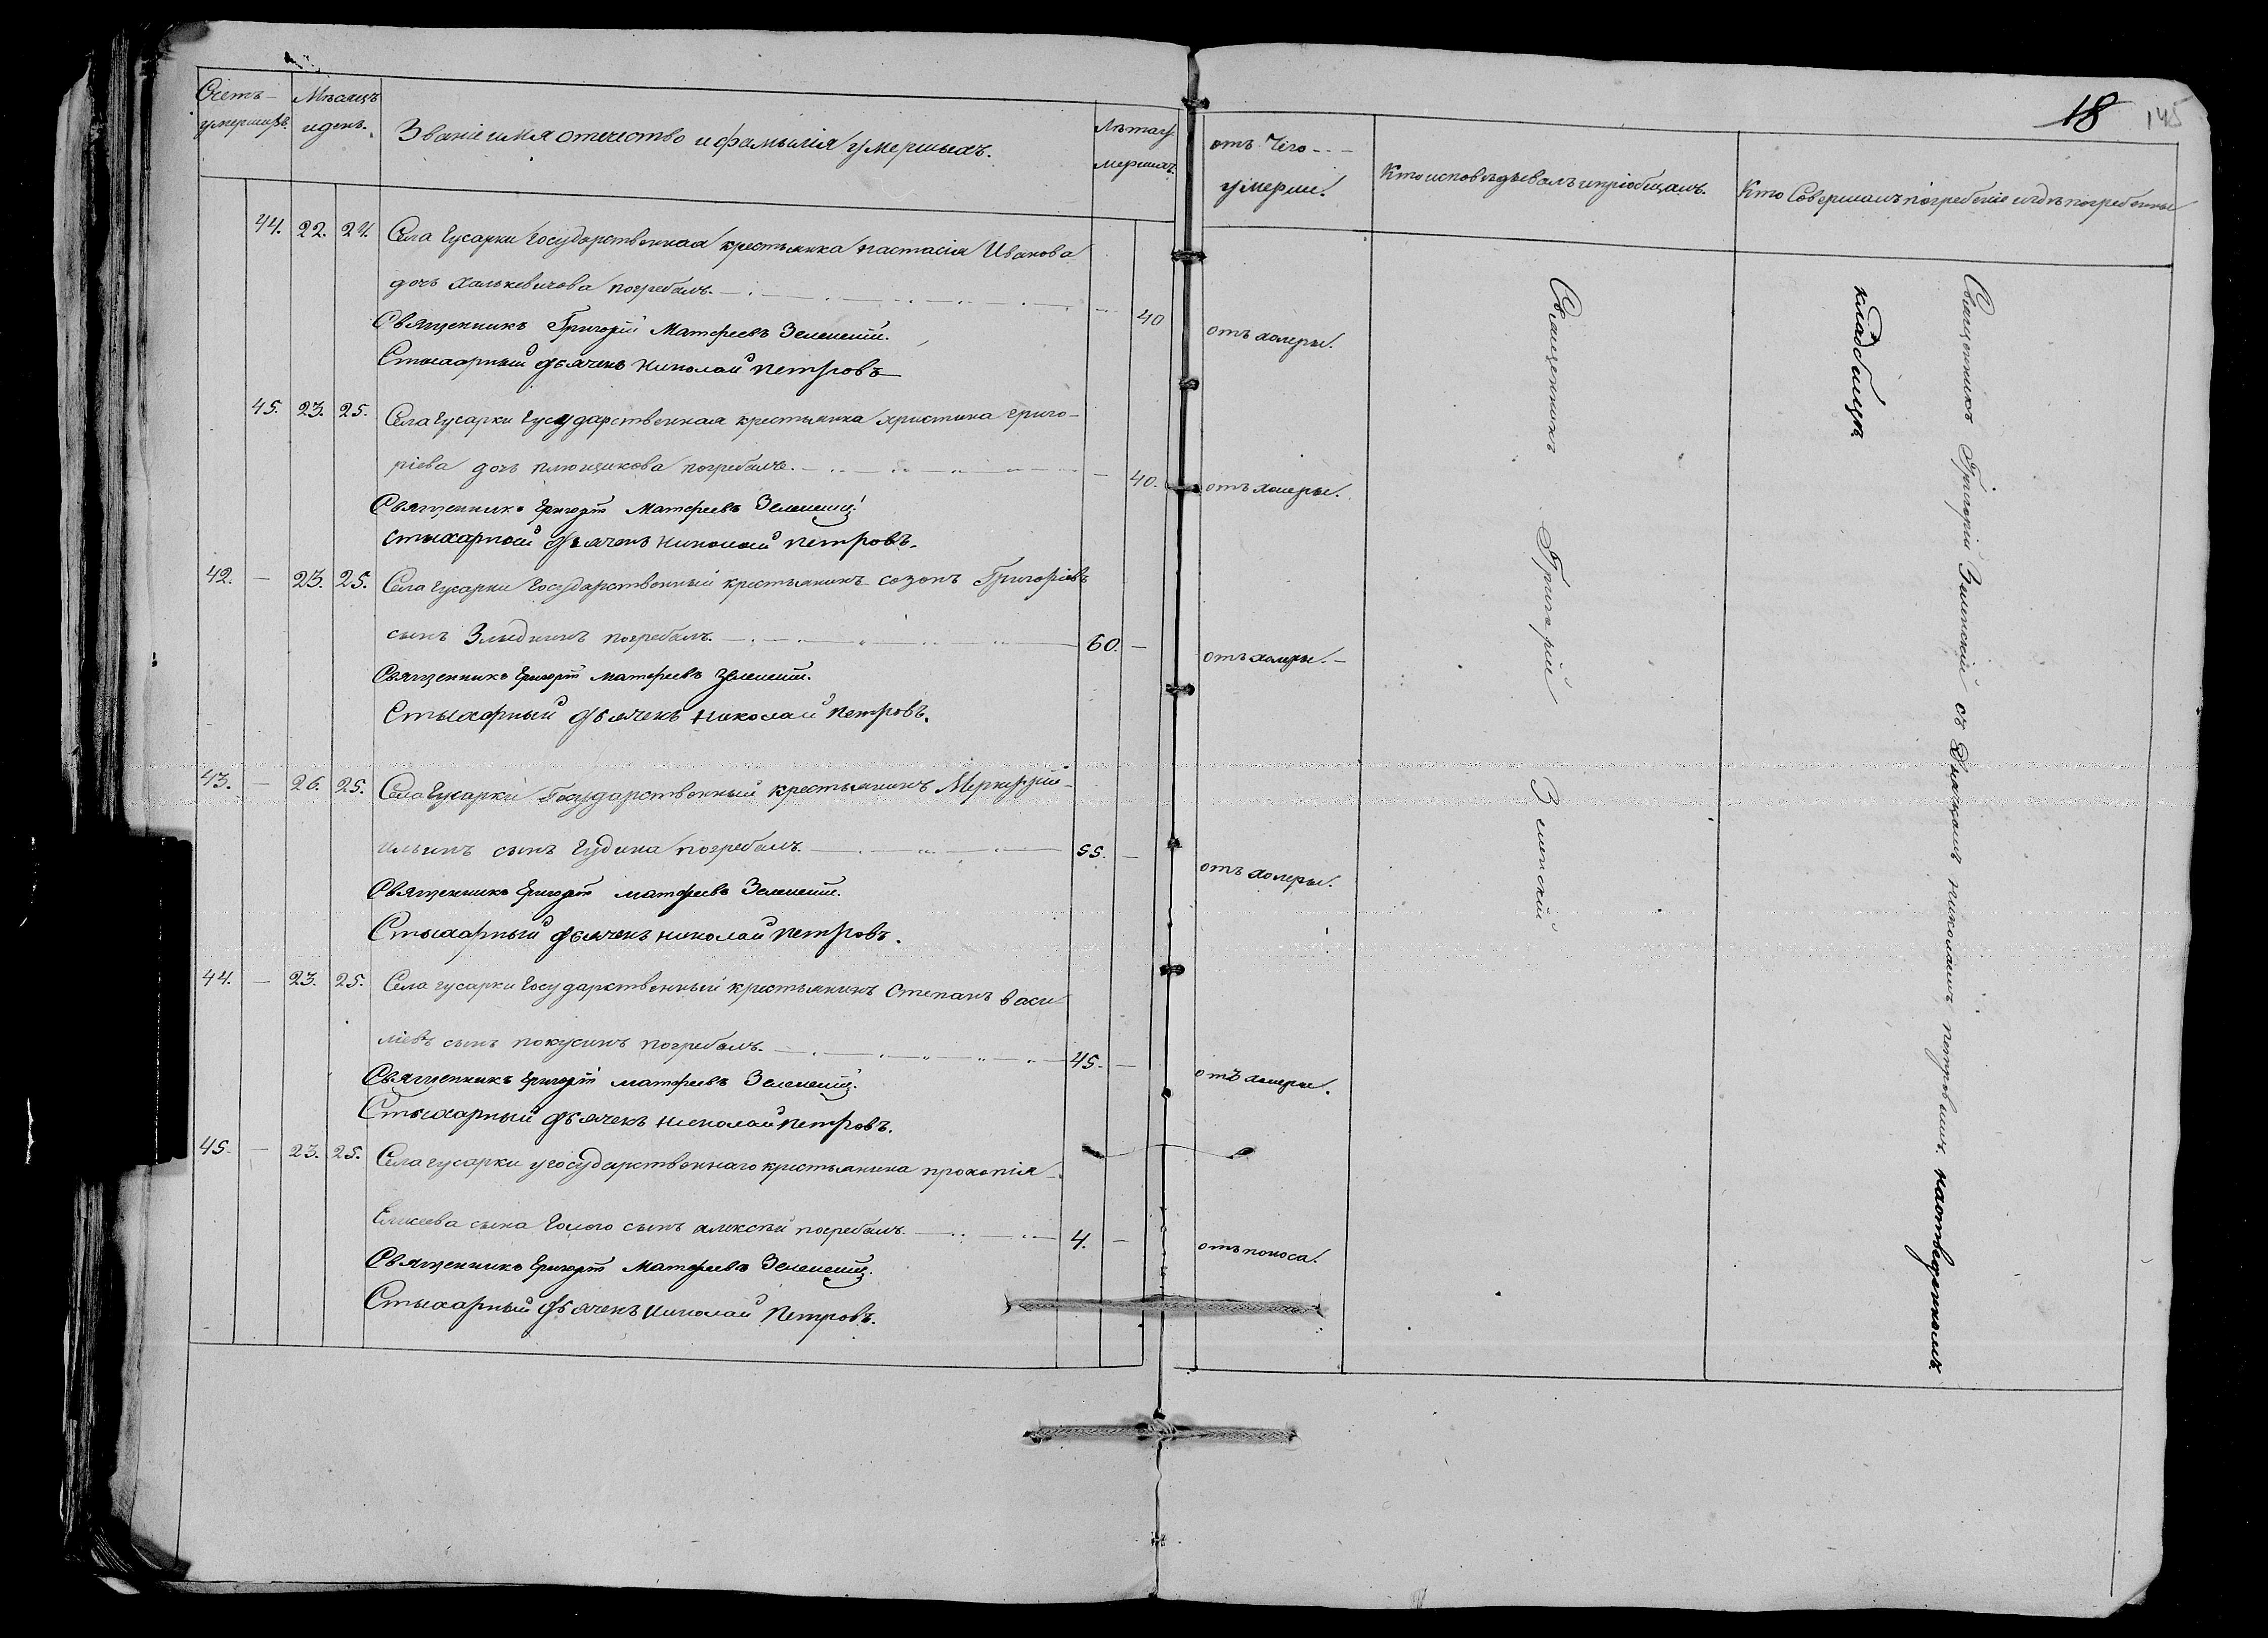 18 145
Счетъ умершихъ.
Мѣсяцъ и день.
Званіе имя отечество и фамилія умершихъ.
Лѣта умершихъ.
отъ Чего умерли.
Кто исповѣдывалъ и пріобщалъ.
Кто Совершалъ погребеніе и гдѣ погребены
44. 22. 24. Села Гусарки Государственная крестьянка Настасія Иванова
дочь Халькевичова погребалъ. 40 отъ холеры.
Священникъ Григорій Матфеевъ Зеленскій.
Стихарный дьячекъ Николай Петровъ
45. 23. 25. Села Гусарки Гусударственная крестьянка Христина Григо-
ріева дочь плющикова погребалъ. 40. отъ холеры.
Священникъ Григорій Матфеевъ Зеленскій
стихарный дьячекъ Николай Петровъ.
42. — 23. 25. Села Гусарки Государственный крестьянинъ созонъ Григоріевъ
сынъ Злыднинъ погребалъ. 60. — отъ холеры. —
Священникъ Григорій Матфеевъ Зеленскій.
Стихарный дьячекъ Николай Петровъ.
43. — 26. 25. Села Гусарки Государственный крестьянинъ Меркурій
Ильинъ сынъ Гудина погребалъ. 55. — отъ холеры.
Священникъ Григорій Матфеевъ Зеленскій.
Стихарный дьячекъ Николай Петровъ.
44. — 23. 25. Села гусарки Государственный крестьянинъ Степанъ Васи
ліевъ сынъ покусинъ погребалъ. 45. — отъ холеры.
Священникъ Григорій Матфеевъ Зеленскій.
Стихарный дьячекъ Николай Петровъ.
45. — 23. 25. Села гусарки у государственнаго крестьянина прокопія
Елисеева сына Голого сынъ алексѣй погребалъ. 4. — отъ поноса.
Священникъ Григорій Матфеевъ Зеленскій.
Стихарный дьячекъ Николай Петровъ.
Священникъ Григорій Зеленскій
Священникъ Григорій Зеленскій съ Дьячкомъ Николаемъ Петровымъ. на отведенномъ
кладбищѣ.